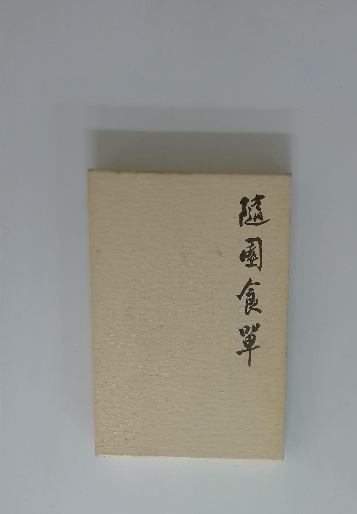 隨園食單